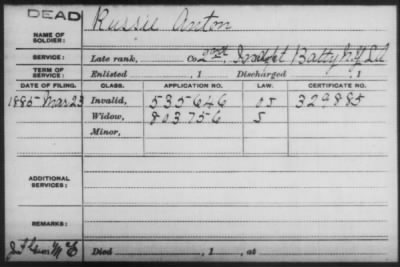 DEAD
NAME OF SOLDIER: Russie Anton
SERVICE: Late rank, Co 22nd Indpt Batty N.Y. L.A
TERM OF SERVICE: Enlisted , 1 Discharged , 1
DATE OF FILING. CLASS. APPLICATION NO. LAW. CERTIFICATE NO.
1885 Mar 23 Invalid, 535646 05 329885
Widow, 803756 S
Minor,
ADDITIONAL SERVICES:
REMARKS:
Died , 1 , at